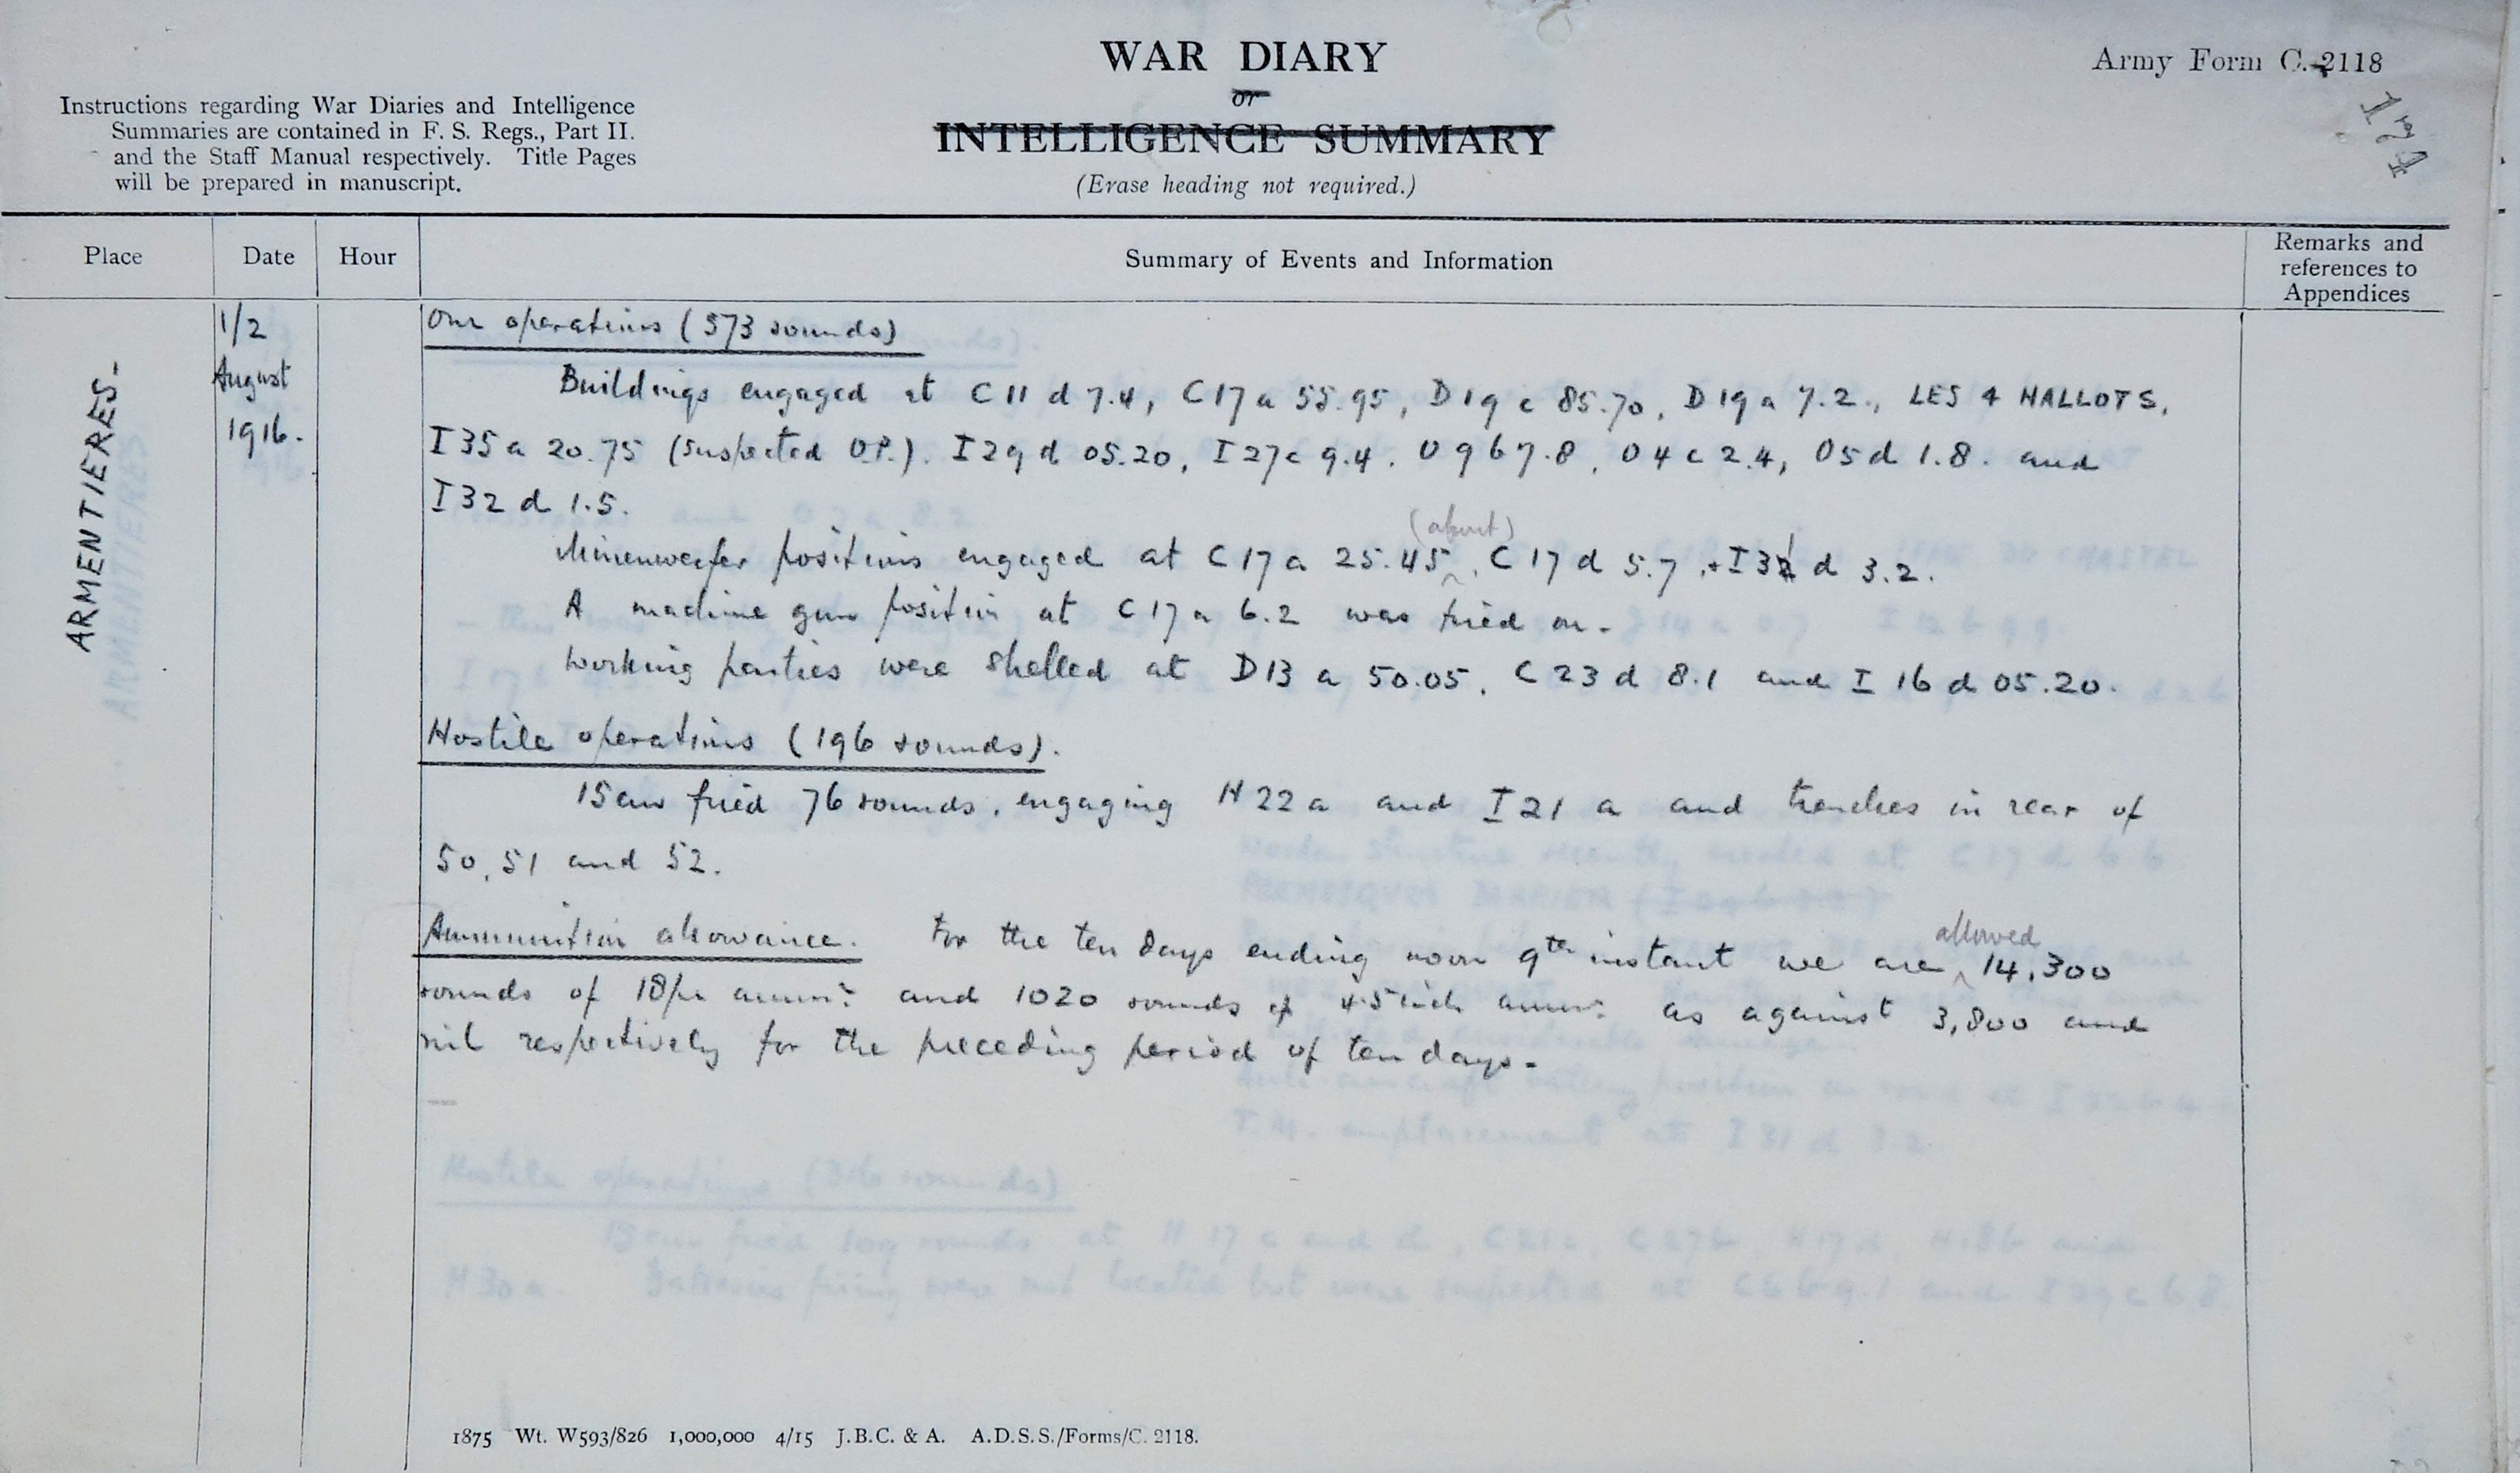 WAR DIARY
or
INTELLIGENCE SUMMARY
(Erase heading not required.)
Army Form C. 2118
Instructions regarding War Diaries and Intelligence
Summaries are contained in F. S. Regs., Part II.
and the Staff Manual respectively. Title Pages
will be prepared in manuscript.
Place
Date
Hour
Summary of Events and Information
Remarks and
references to
Appendices
ARMENTIERES.
1/2
August
1916.
Our operations (573 rounds)
Buildings engaged at C 11 d 7.4, C 17 a 55.95, D 19 c 85.70, D 19 a 7.2., LES 4 HALLOTS,
I 35 a 20.75 (suspected O.P.). I 29 d 05.20, I 27 c 9.4. O 9 b 7.8, O 4 c 2.4, O 5 d 1.8. and
I 32 d 1.5.
Minenwerfer positions engaged at C 17 a 25.45 (about), C 17 d 5.7, + I 31 d 3.2.
A machine gun position at C 17 a 6.2 was fired on.
Working parties were shelled at D 13 a 50.05, C 23 d 8.1 and I 16 d 05.20.
Hostile operations (196 rounds).
15 cm fired 76 rounds, engaging H 22 a and I 21 a and trenches in rear of
50, 51 and 52.
Ammunition allowance. For the ten days ending noon 9th instant we are allowed 14,300
rounds of 18/pr ammn: and 1020 rounds of 4.5 inch ammn: as against 3,800 and
nil respectively for the preceding period of ten days.
1875 Wt. W593/826 1,000,000 4/15 J.B.C. & A. A.D.S.S./Forms/C. 2118.